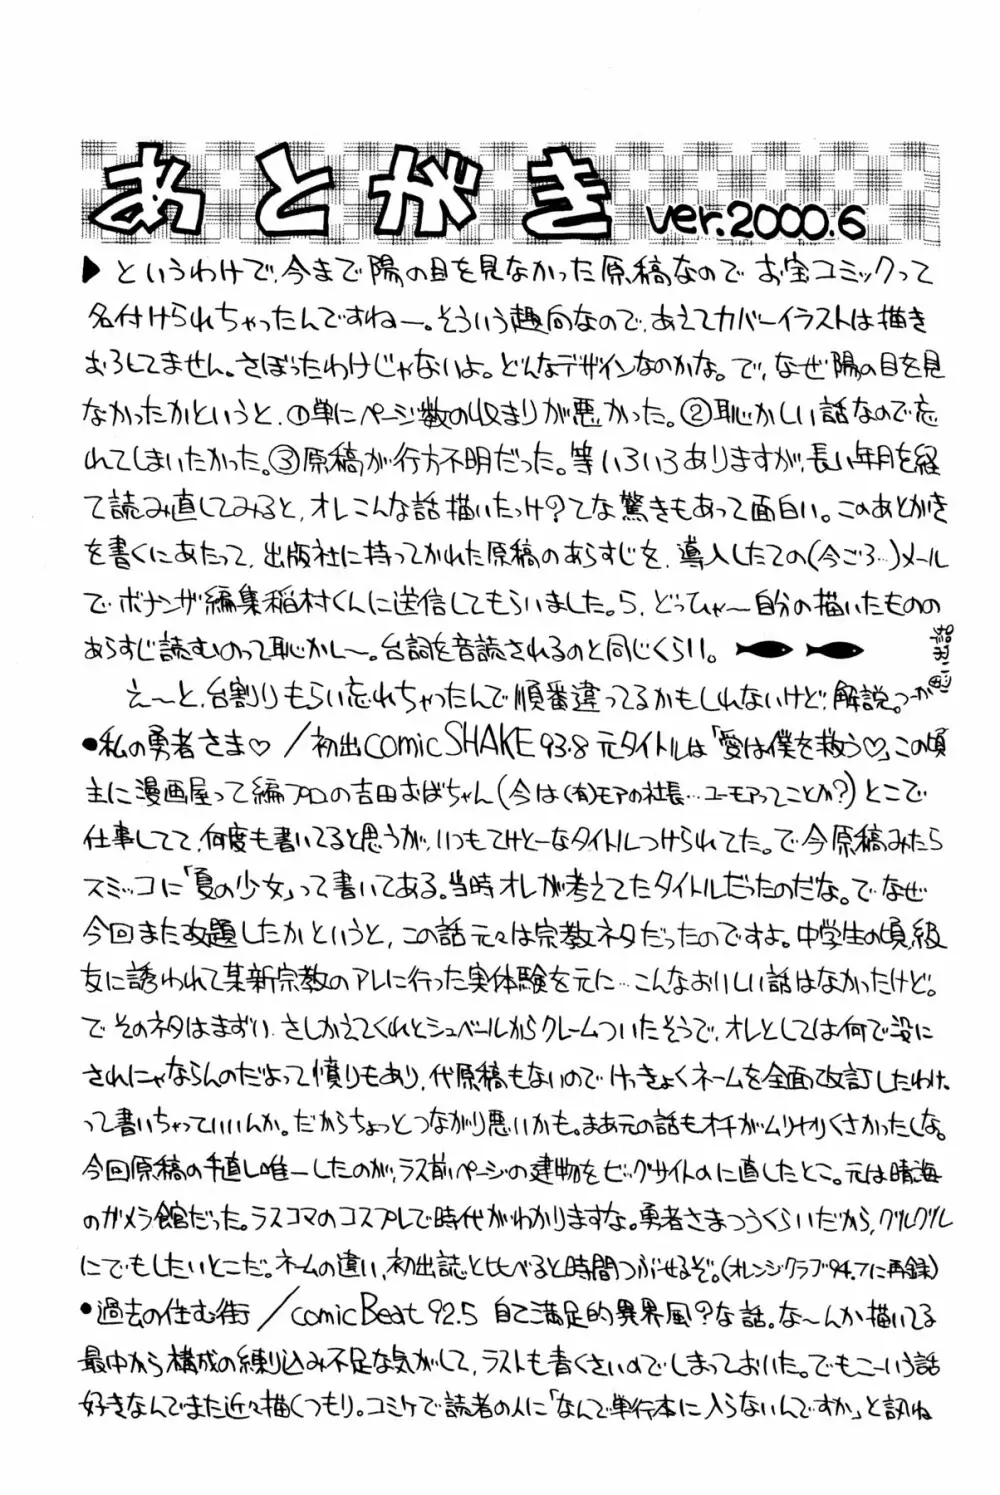 あとがき ver.2000.6
▶というわけで、今まで陽の目を見なかった原稿なので お宝コミックって
名付けられちゃったんですねー。そういう趣向なので、あえてカバーイラストは描き
おろしてません。さぼったわけじゃないよ。どんなデザインなのかな。で、なぜ陽の目を見
なかったかというと、①単にページ数の収まりが悪かった。②恥かしい話なので忘
れてしまいたかった。③原稿が行方不明だった。等いろいろありますが、長い年月を経
て読み直してみると、オレこんな話描いたっけ?てな驚きもあって面白い。このあとがき
を書くにあたって、出版社に持ってかれた原稿のあらすじを、導入したての(今ごろ…)メール
でボナンザ編集稲村くんに送信してもらいました。ら、どっひゃ〜自分の描いたものの
あらすじ読むのって恥かし〜。台詞を音読されるのと同じくらい。
え〜と、台割りもらい忘れちゃったんで順番違ってるかもしれないけど、解説。つか
●私の勇者さま♡/初出comic SHAKE 93.8 元タイトルは「愛は僕を救う♡」この頃
主に漫画屋って編プロの吉田おばちゃん(今は(有)モアの社長…ユーモアってことか?)とこで
仕事してて、何度も書いてると思うが、いつもてけとーなタイトルつけられてた。で今原稿みたら
スミッコに「夏の少女」って書いてある。当時オレが考えてたタイトルだったのだな。でなぜ
今回また改題したかというと、この話元々は宗教ネタだったのですよ。中学生の頃、級
友に誘われて某新宗教のアレに行った実体験を元に…こんなおいしい話はなかったけど。
でそのネタはまずい、さしかえてくれとシュベールからクレームついたそうで、オレとしては何で没に
されにゃならんのだよって憤りもあり、代原稿もないのでけっきょくネームを全面改訂したわけ、
って書いちゃっていいんか。だからちょっとつながり悪いかも。まあ元の話もオチがムリヤリくさかったしな。
今回原稿の手直し唯一したのが、ラス前ページの建物をビッグサイトのに直したとこ。元は晴海
のガメラ館だった。ラスコマのコスプレで時代がわかりますな。勇者さまつうくらいだから、グルグル
にでもしたいとこだ。ネームの違い、初出誌と比べると時間つぶせるぞ。(オレンジクラブ94.7に再録)
●過去の住む街/comic Beat 92.5 自己満足的異界風?な話。な〜んか描いてる
最中から構成の練り込み不足な気がして、ラストも青くさいのでしまっておいた。でもこーいう話
好きなんでまた近々描くつもり。コミケで読者の人に「なんで単行本に入らないんですか」と訊ね